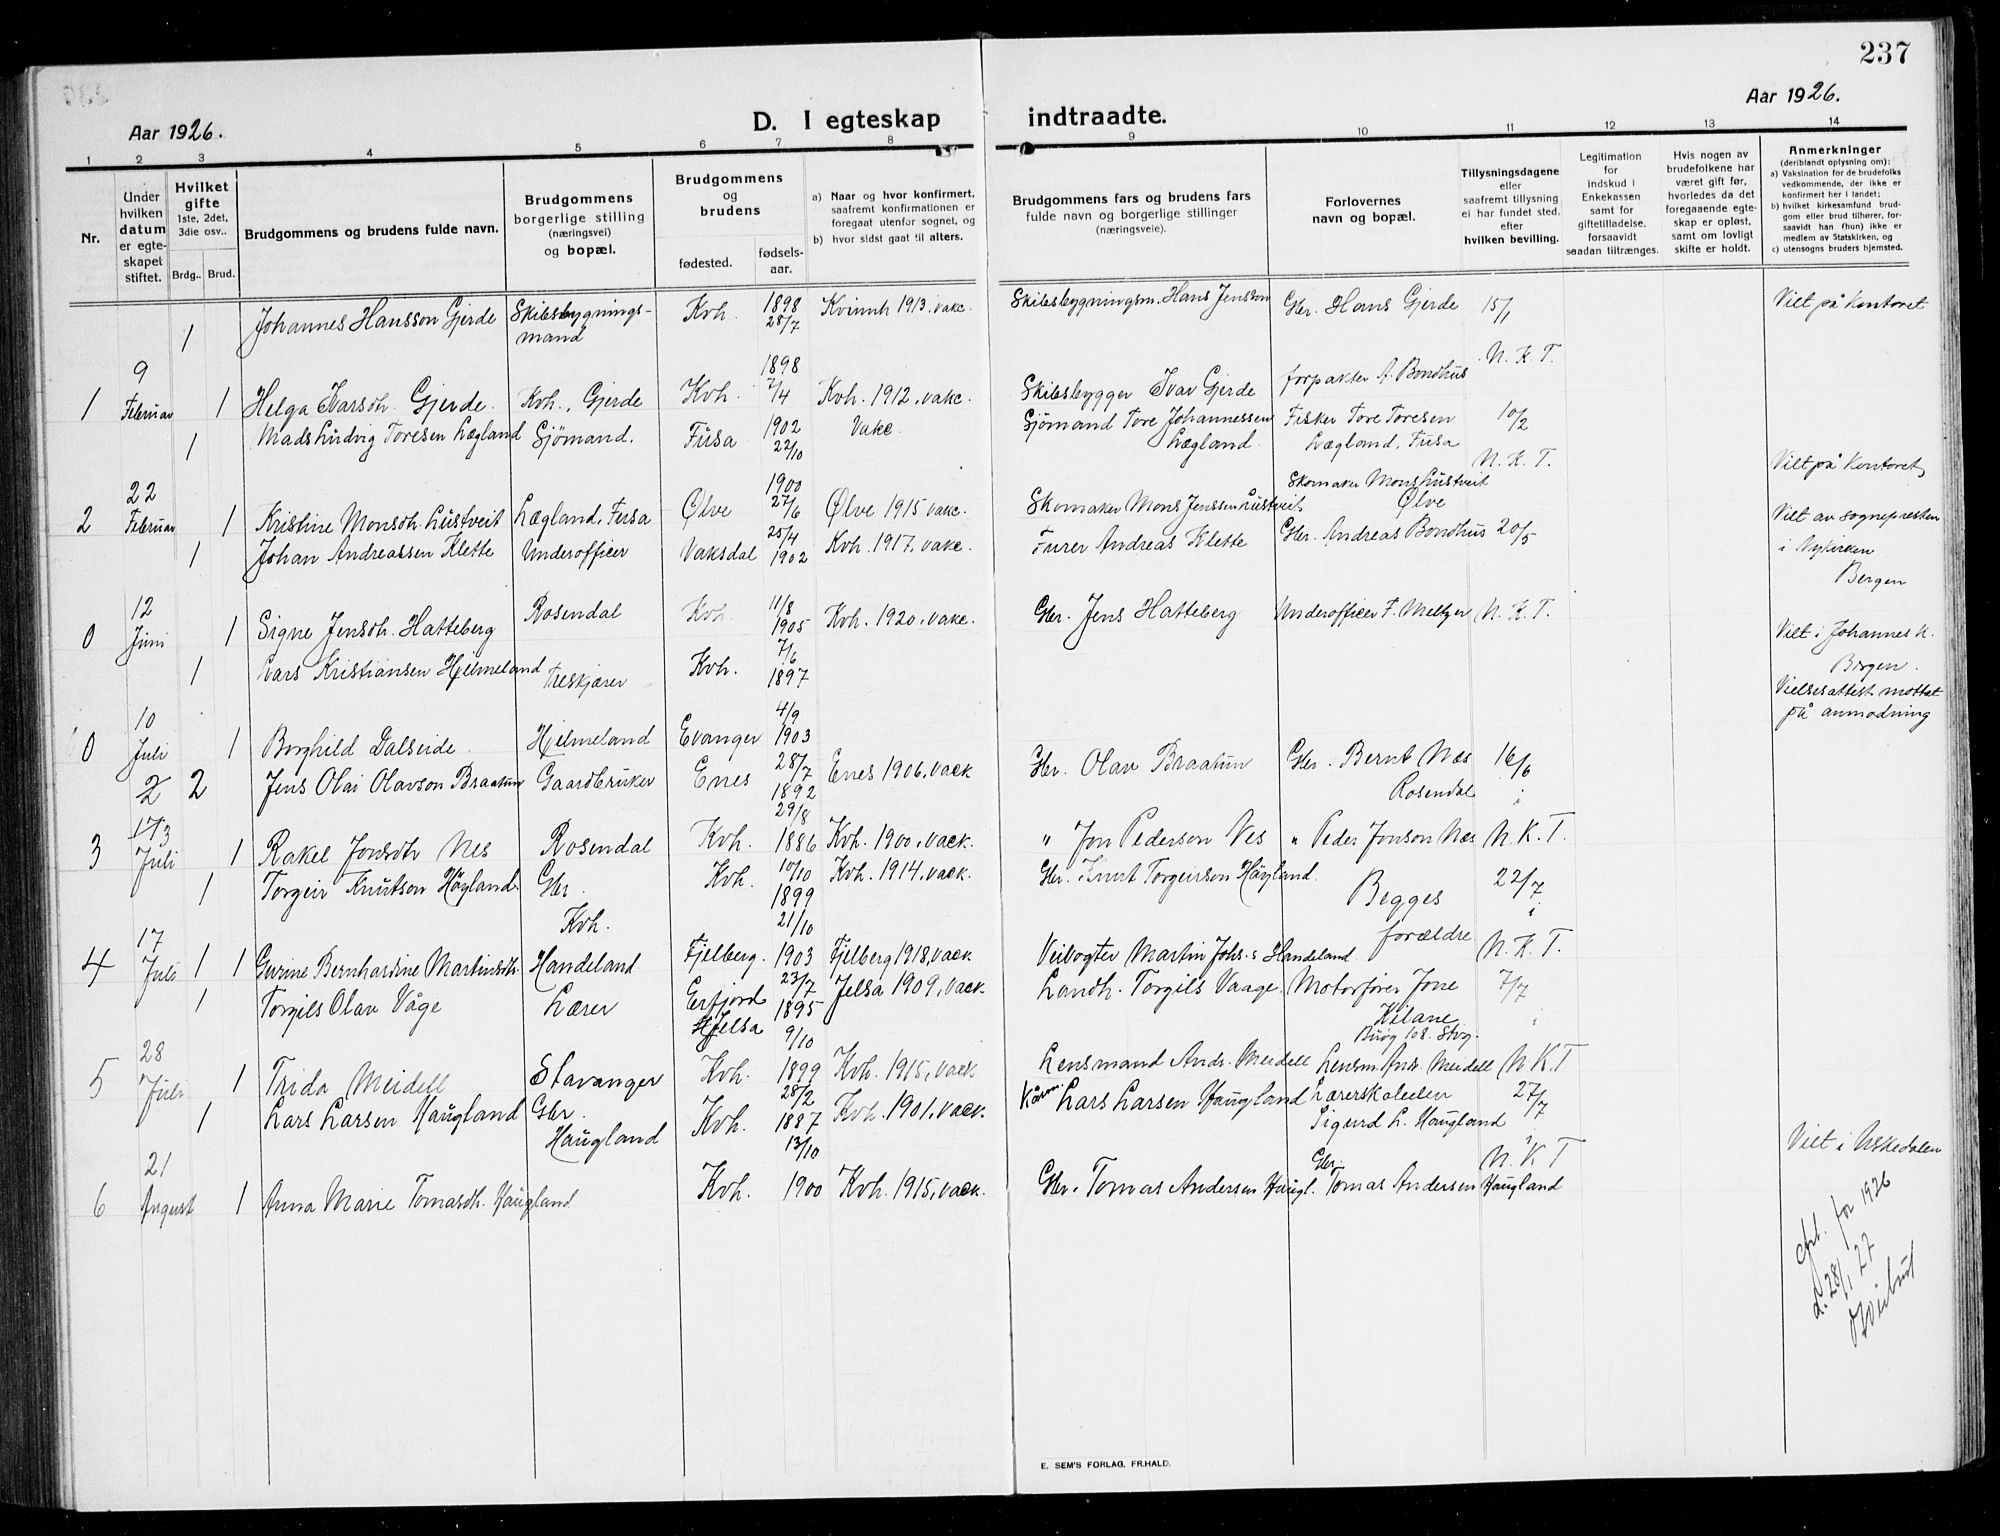 237
Aar 1926.
D. I egteskap indtraadte.
Aar 1926.
1 2 3 4 5 6 7 8 9 10 11 12 13 14
Nr.
Under hvilken datum er egte-skapet stiftet.
Hvilket gifte 1ste, 2det, 3die osv..
Brdg.. Brud.
Brudgommens og brudens fulde navn.
Brudgommens borgerlige stilling (næringsvei) og bopæl.
Brudgommens og brudens
fødested. fødsels-aar.
a) Naar og hvor konfirmert, saafremt konfirmationen er foregaat utenfor sognet, og
b) hvor sidst gaat til alters.
Brudgommens fars og brudens fars fulde navn og borgerlige stillinger (næringsveie).
Forlovernes navn og bopæl.
Tillysningsdagene eller saafremt tillysning ei har fundet sted. efter hvilken bevilling.
Legitimation for indskud i Enkekassen samt for giftetilladelse, forsaavidt saadan tiltrænges.
Hvis nogen av brudefolkene har været gift før, hvorledes da det foregaaende egte-skap er opløst, samt om lovligt skifte er holdt.
Anmerkninger (deriblandt oplysning om):
a) Vaksination for de brudefolks vedkommende, der ikke er konfirmert her i landet;
b) hvilket kirkesamfund brud-gom eller brud tilhører, for-saavidt han (hun) ikke er medlem av Statskirken, og
c) utensogns bruders hjemsted.
1 Johannes Hansson Gjerde Skibsbygnings-mand Kvh. 1898 28/7 Kvinnh 1913. vakc. Skibsbygningsm. Hans Jensson Gbr. Hans Gjerde 15/1 Viet på kontoret
1 9 Februar 1 Helga Ivarsdh. Gjerde. Kvh., Gjerde Kvh. 1898 7/4 Kvh. 1912, vakc. Skibsbygger Ivar Gjerde forpakter A. Bondhus N. K. T.
1 Mads Ludvig Toresen Lægland Sjömand. Fusa 1902 22/10 Vakc. Sjömand Tore Johannessen Lægland. Fisker Tore Toresen Lægland, Fusa 10/2
2 22 Februar 1 Kristine Monsdh. Lustveit Lægland, Fusa Ølve 1900 27/6 Ølve 1915 vakc. Skomaker Mons Jenssen Lustveit Skomaker Mons Lustveit Ølve N. K. T. Viet på kontoret
1 Johan Andreassen Klette Underofficer Vaksdal 25/4 1902 Kvh. 1917, vakc. Furer Andreas Klette Gbr. Andreas Bondhus 20/5 Viet av sognepresten i Nykirken Bergen
0 12 Juni 1 Signe Jensdh. Hatteberg Rosendal Kvh. 11/8 1905 Kvh. 1920, vakc. Gbr. Jens Hatteberg Underofficer F. Meltzer N. K. T. Viet i Johannes k. Bergen.
1 Lars Kristiansen Hjelmeland Treskjærer Kvh. 7/6 1897 Vielsesattest mottat på anmodning
0 10 Juli 1 Borghild Dalseide. Hjelmeland Evanger 4/9 1903
2 2 Jens Olai Olavson Braatun Gaardbruker Enes 28/7 1892 Enes 1906, vack Gbr. Olav Braatun Gbr. Bernt Næs Rosendal 16/6 i
3 3 Juli 1 Rakel Jonsdtr Nes Rosendal Kvh. 29/8 1886 Kvh. 1900, vack. " Jon Pederson Nes " Peder Jonson Næs N. K. T.
1 Torgeir Knutson Höyland. Gbr. Kvh. Kvh. 10/10 1899 Kvh. 1914, vack. Gbr. Knut Torgeirson Höyland. Begges forældre 22/7 i
4 17 Juli 1 1 Gurine Bernhardine Martinsdh. Handeland Fjelberg. 21/10 1903 Fjelberg 1918, vack Veivogter Martin Johs.s Handeland N. K. T.
1 Torgils Olav Våge Lærer Erfjord Hjelsa 23/7 1895 Jelsa 1909, vack. Landh. Torgils Vaage. Motorfører Jone Kilane Buøg 108. Stvg. 7/7 i
5 28 Juli 1 Trida Meidell Stavanger Kvh. 9/10 1899 Kvh. 1915, vack Lensmand Andr. Meidell Lensm. Andr. Meidell N K T
1 Lars Larsen Haugland Gbr. Haugland Kvh. 28/2 1887 Kvh. 1901, vack. Kårm. Lars Larsen Haugland Lærerskoleelev Sigurd L. Haugland 27/7 i Viet i Uskedalen
6 21 August 1 Anna Marie Tomasdh. Haugland Kvh. 13/10 1900 Kvh. 1915, vack. Gbr. Tomas Andersen Haugl. Gbr. Tomas Andersen Haugland N. K T
for 1926
d. 28/1 27
E. SEM'S FORLAG, FR.HALD.